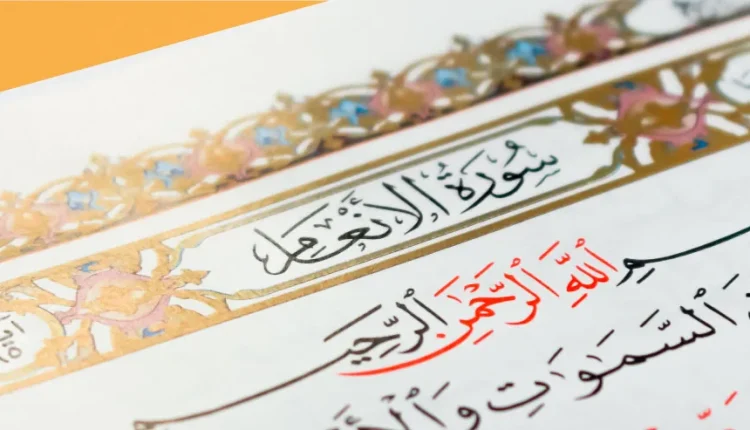 سُورَةُ الْأَنْعَامِ
بِسْمِ ٱللَّهِ ٱلرَّحْمَٰنِ ٱلرَّحِيمِ
ٱلسَّمَٰوَٰتِ وَٱلْأَرْضَ